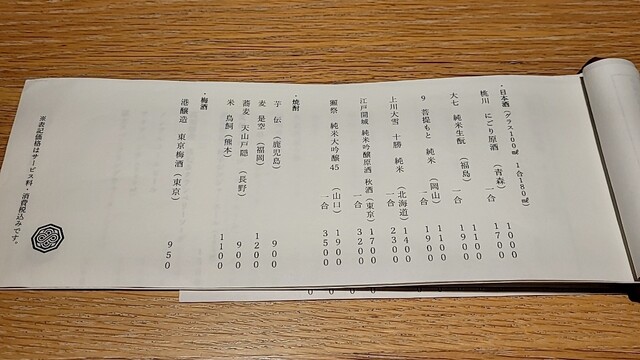 ・日本酒（グラス100㎖ 1合180㎖）
桃川 にごり原酒（青森） 1000
一合 1700
大七 純米生酛（福島） 1100
一合 1900
9 菩提もと 純米（岡山） 1100
一合 1900
上川大雪 十勝 純米（北海道） 1400
一合 2300
江戸開城 純米吟醸原酒 秋酒（東京） 1700
一合 3200
獺祭 純米大吟醸45（山口） 1900
一合 3500
・焼酎
芋 伝（鹿児島） 900
麦 是空（福岡） 1200
蕎麦 天山戸隠（長野） 900
米 鳥飼（熊本） 1100
・梅酒
港醸造 東京梅酒（東京） 950
※表記価格はサービス料・消費税込みです。